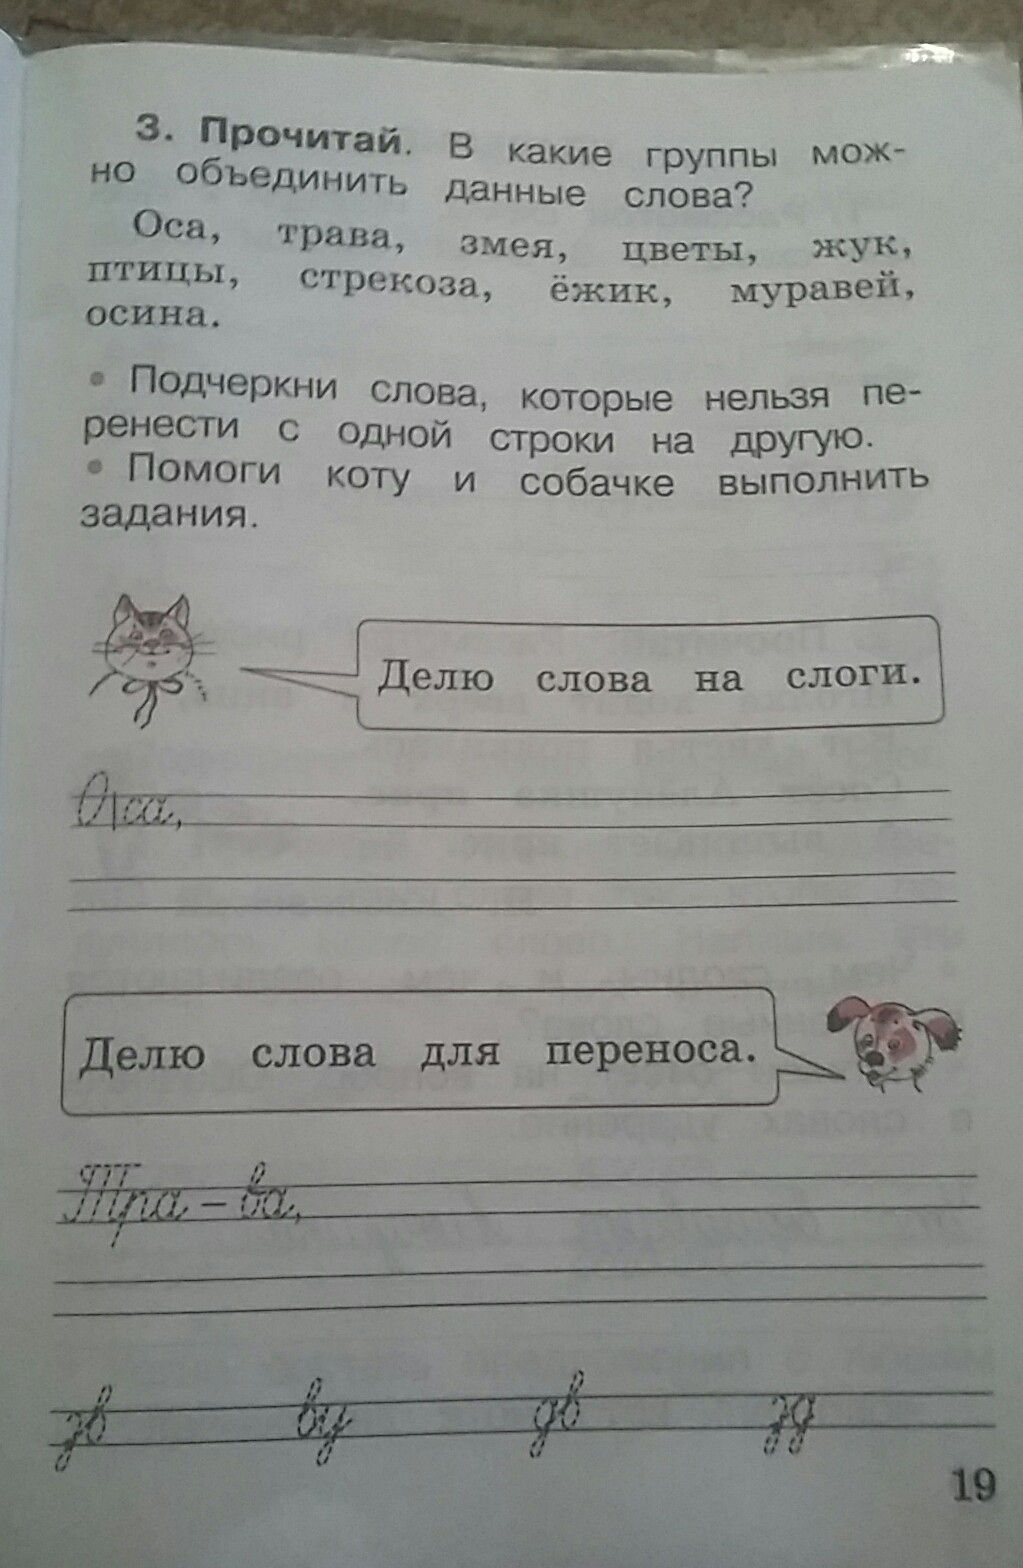 3. Прочитай. В какие группы мож-
но объединить данные слова?
Оса, трава, змея, цветы, жук,
птицы, стрекоза, ёжик, муравей,
осина.
• Подчеркни слова, которые нельзя пе-
ренести с одной строки на другую.
• Помоги коту и собачке выполнить
задания.
Делю слова на слоги.
О|са,
Делю слова для переноса.
Тра – ва,
зв ву дв зд
19